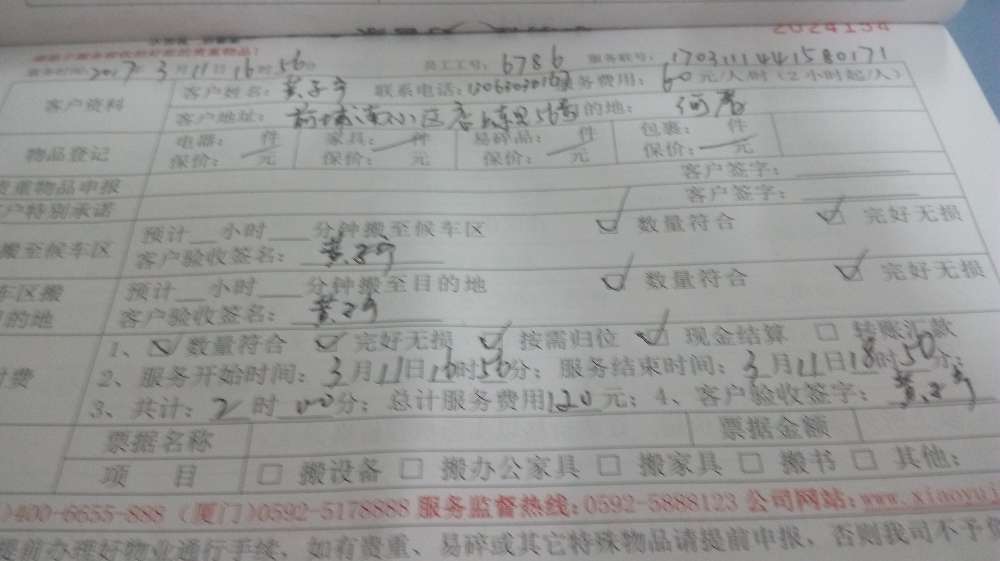 2024154
服务时间:2017年3月11日16时56分 员工工号:6786 服务联号:1703111441580171
客户资料 客户姓名: 联系电话: 服务费用:60元/人/时(2小时起/人)
客户地址: 小区 目的地:
物品登记 电器: 件 家具: 件 易碎品: 件 包裹: 件
保价: 元 保价: 元 保价: 元 保价: 元
贵重物品申报 客户签字:
客户特别承诺 客户签字:
搬至候车区 预计__小时___分钟搬至候车区 ☑ 数量符合 ☑ 完好无损
客户验收签名:
车区搬 预计__小时___分钟搬至目的地 ☑ 数量符合 ☑ 完好无损
目的地 客户验收签名:
1、☑数量符合 ☑完好无损 ☑按需归位 ☑现金结算 □转账汇款
付费 2、服务开始时间:3月11日16时56分;服务结束时间:3月11日18时50分;
3、共计:2时00分;总计服务费用120元;4、客户验收签字:
票据名称 票据金额
项 目 □搬设备 □搬办公家具 □搬家具 □搬书 □其他:
)400-6655-888 (厦门)0592-5178888 服务监督热线:0592-5888123 公司网站:www.xiaoyu
提前办理好物业通行手续,如有贵重、易碎或其它特殊物品请提前申报,否则我司不予